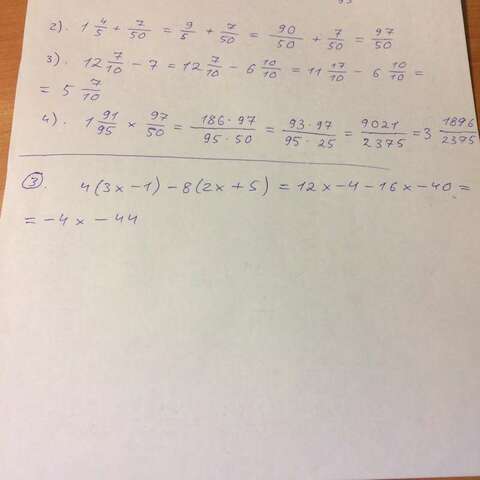 2). 1 4/5 + 7/50 = 9/5 + 7/50 = 90/50 + 7/50 = 97/50
3). 12 7/10 - 7 = 12 7/10 - 6 10/10 = 11 17/10 - 6 10/10 =
= 5 7/10
4). 1 91/95 × 97/50 = 186·97/95·50 = 93·97/95·25 = 9021/2375 = 3 1896/2375
3. 4(3x-1)-8(2x+5) = 12x-4-16x-40 =
= -4x-44